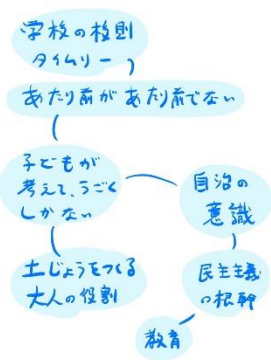 学校の校則
タイムリー
あたり前があたり前でない
子どもが
考えて、うごく
しかない
自治の
意識
土じょうをつくる
大人の役割
民主主義
の根幹
教育